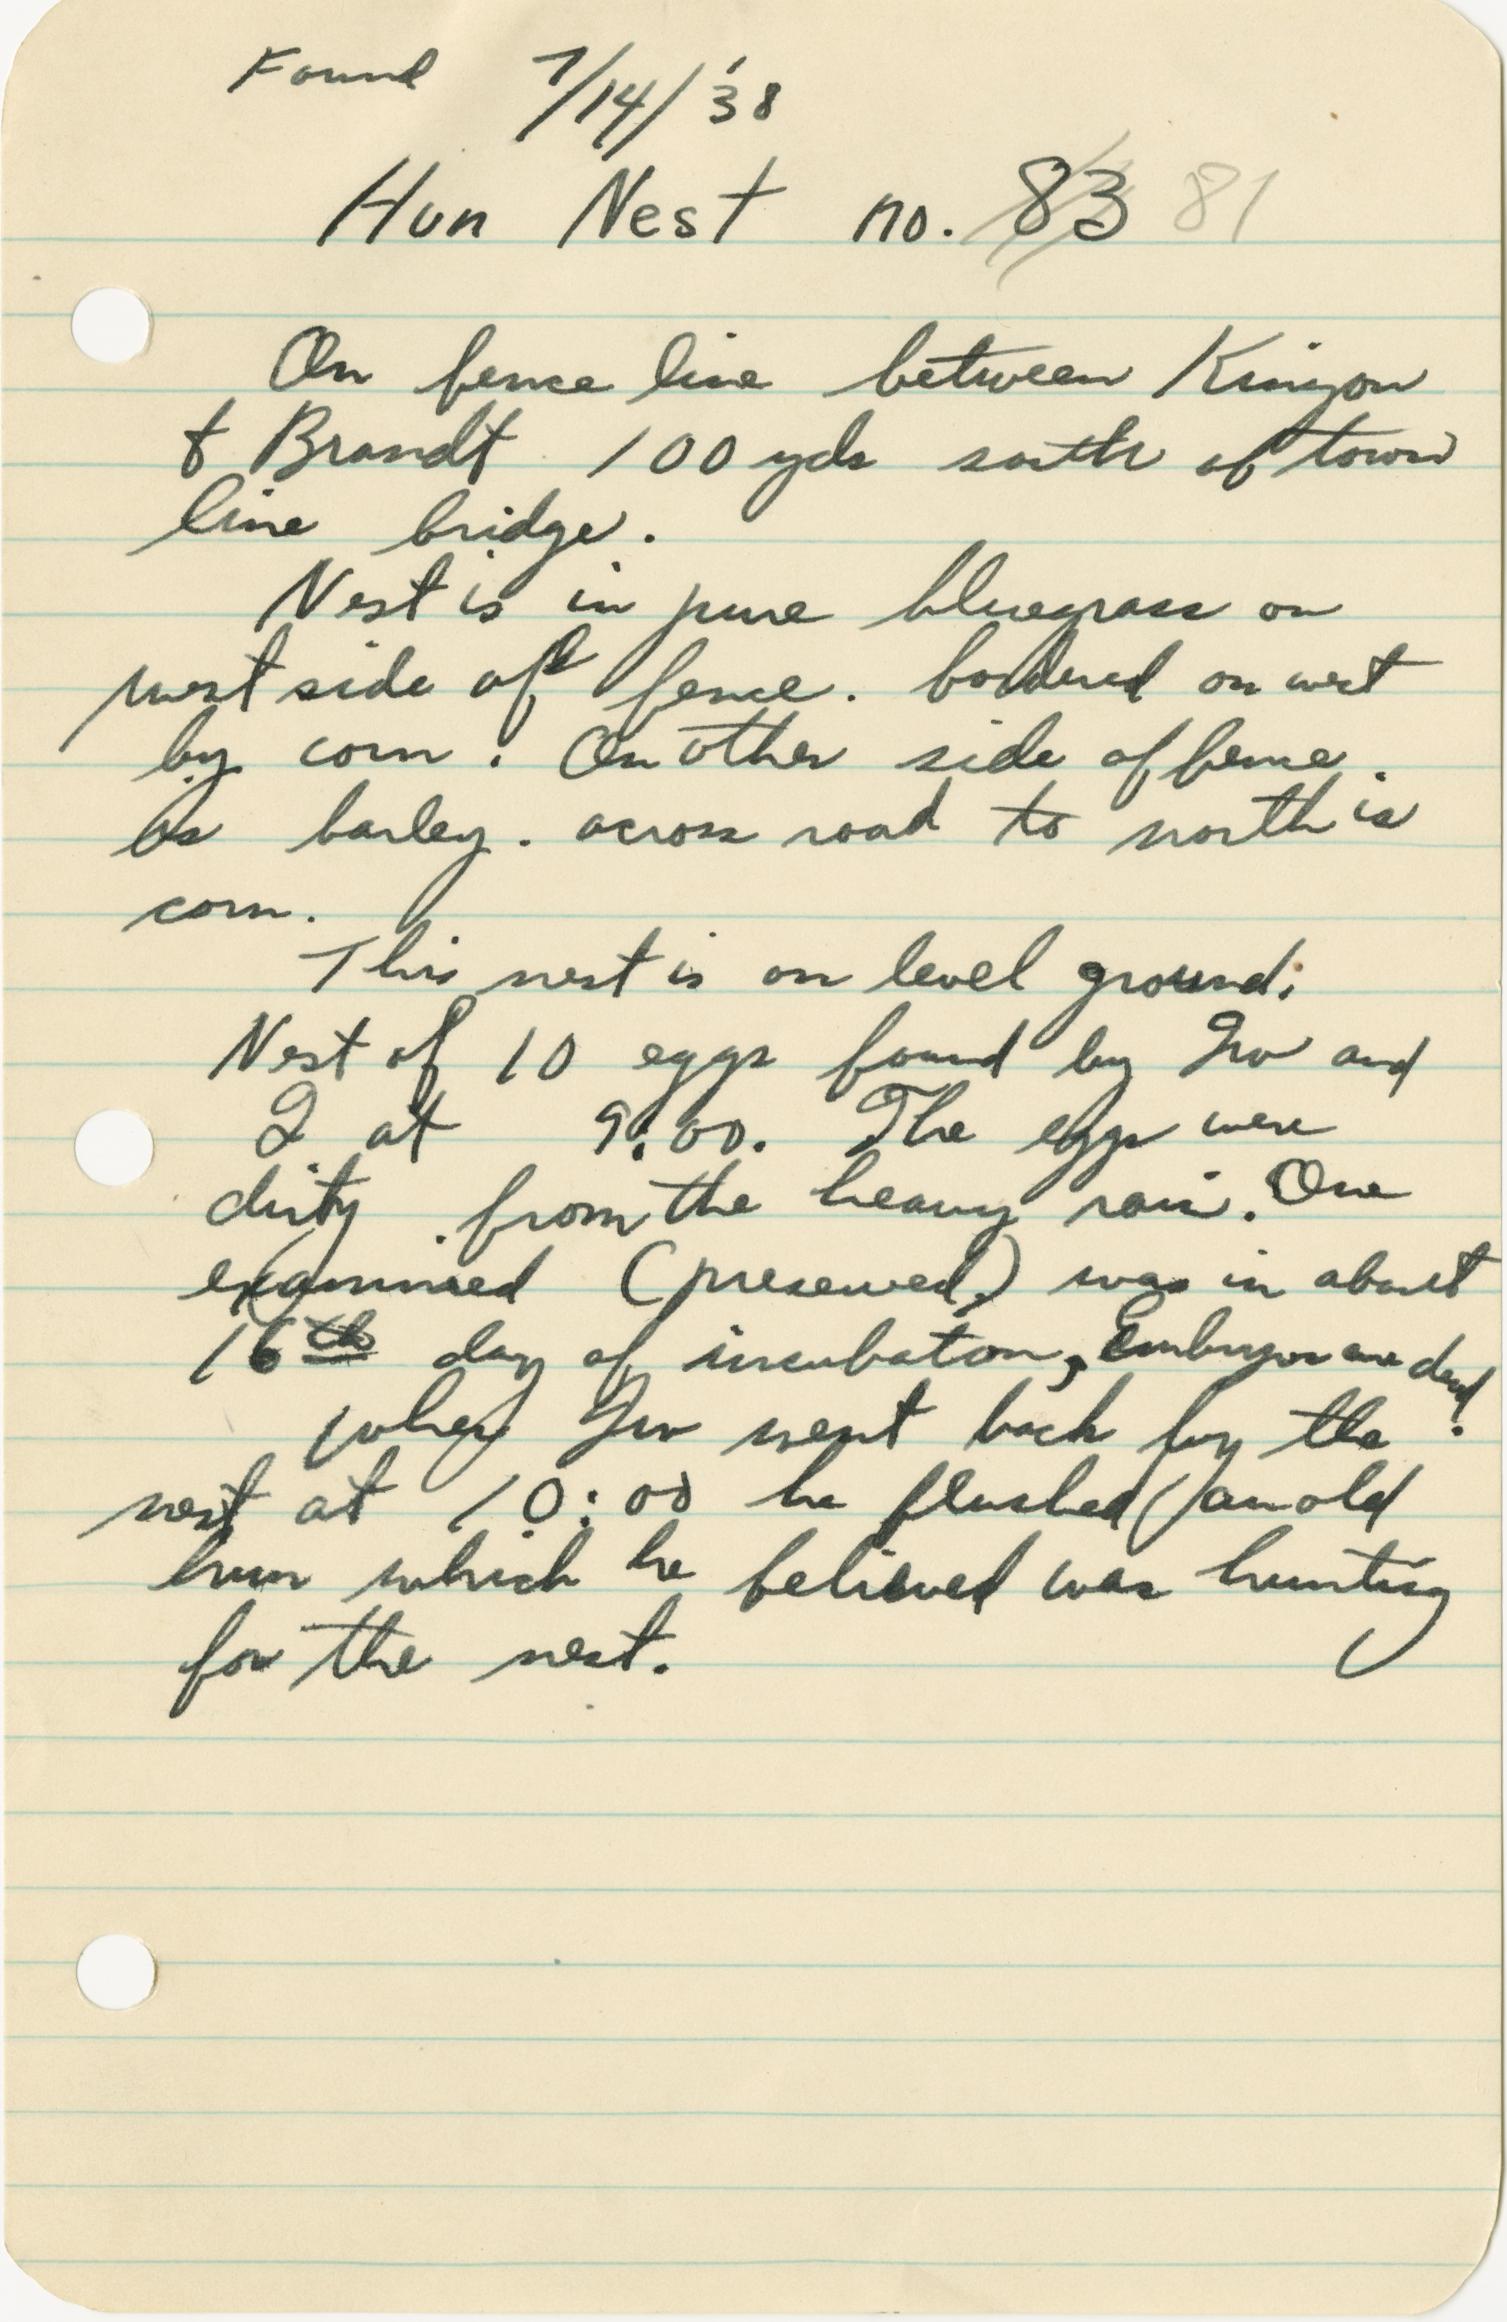 Found 7/14/'38
Hun Nest no. 83 81
On fence line between Kinyon
& Brandt 100 yds south of town
line bridge.
Nest is in pure bluegrass on
west side of fence. bordered on west
by corn. On other side of fence
is barley. across road to north is
corn.
This nest is on level ground.
Nest of 10 eggs found by Irv and
I at 9:00. The eggs were
dirty from the heavy rain. One
examined (preserved) was in about
16th day of incubaton, Embryos are dead.
when Irv went back by the
nest at 10:00 he flushed an old
hun which he believed was hunting
for the nest.